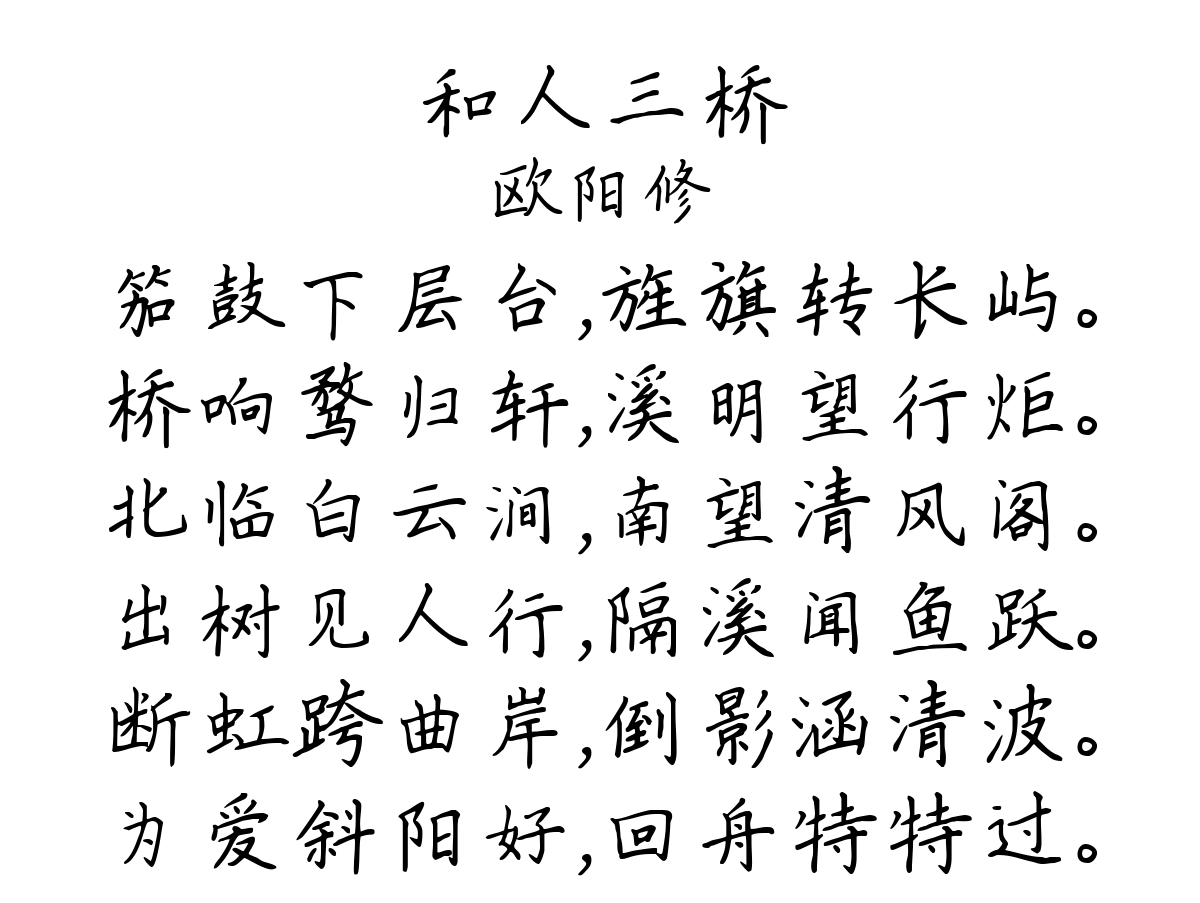 和人三桥
欧阳修
笳鼓下层台,旌旗转长屿。
桥响鹜归轩,溪明望行炬。
北临白云涧,南望清风阁。
出树见人行,隔溪闻鱼跃。
断虹跨曲岸,倒影涵清波。
为爱斜阳好,回舟特特过。